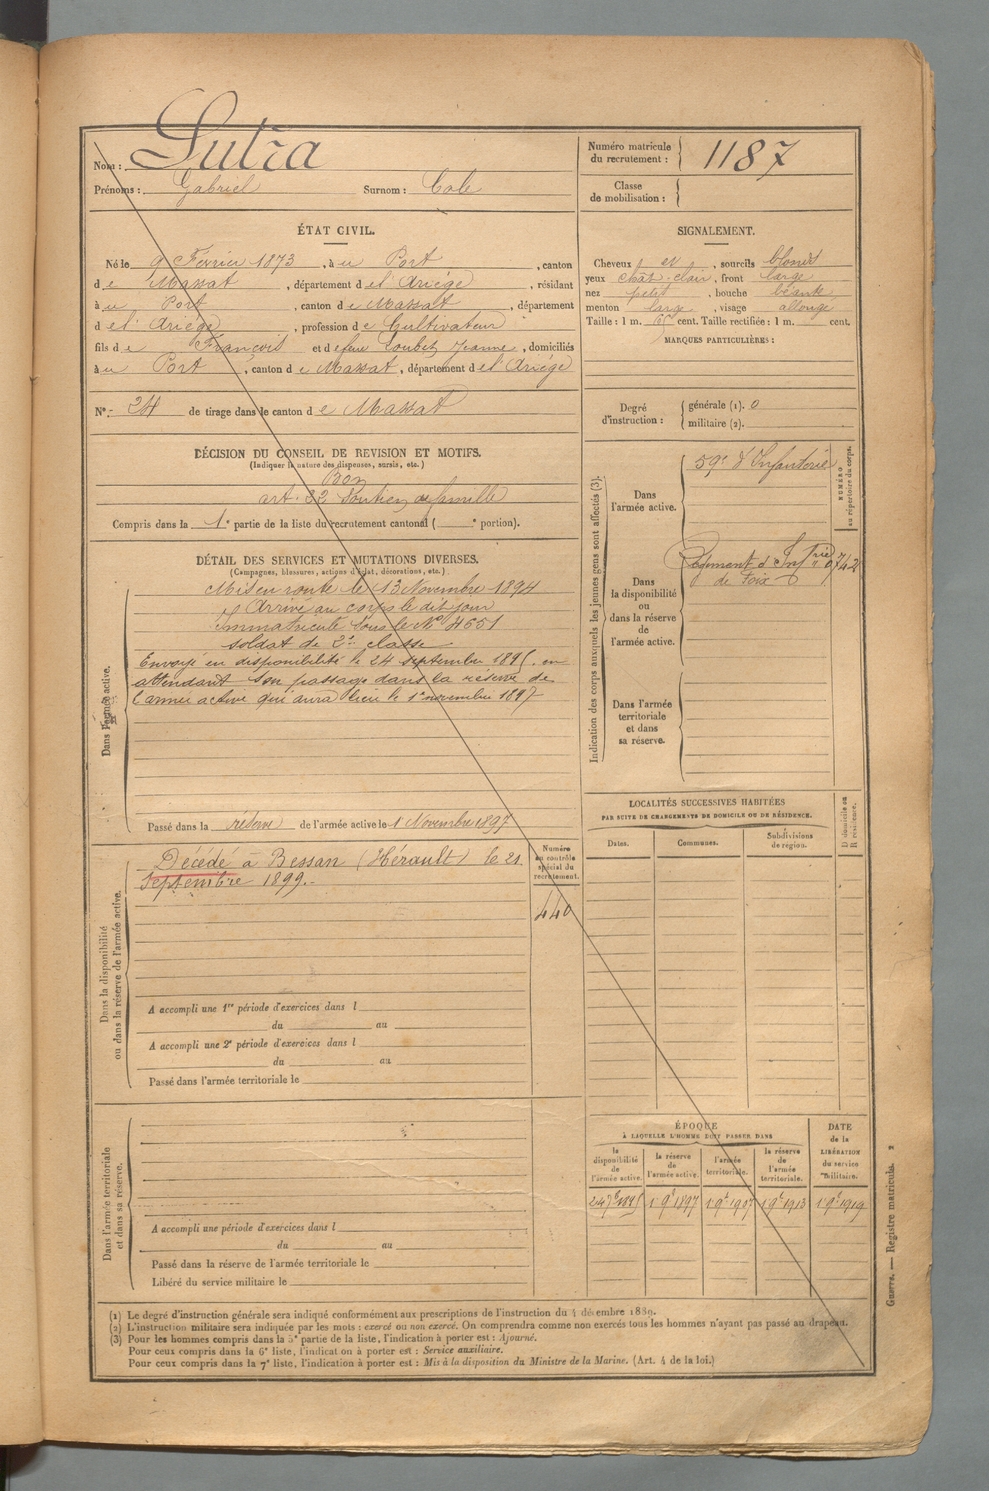 Nom : Lutra
Prénoms : Gabriel Surnom : Cole
Numéro matricule du recrutement : 1187
Classe de mobilisation :
ÉTAT CIVIL.
Né le 9 Février 1873, à u Port, canton
d e Massat, département d e l'Ariége, résidant
à u Port, canton d e Massat, département
d e l'Ariége, profession d e Cultivateur
fils d e François et d e feue Loubet Jeanne, domiciliés
à u Port, canton d e Massat, département d e l'Ariége
N° 24 de tirage dans le canton d e Massat
SIGNALEMENT.
Cheveux et, sourcils blonds
yeux chat-clair, front large
nez petit, bouche béante
menton large, visage allongé
Taille : 1 m. 65 cent. Taille rectifiée : 1 m. cent.
MARQUES PARTICULIÈRES :
Degré d'instruction : générale (1). 0
militaire (2).
DÉCISION DU CONSEIL DE REVISION ET MOTIFS.
(Indiquer la nature des dispenses, sursis, etc.)
Bon
art. 22 Soutien de famille
Compris dans la 1e partie de la liste du recrutement cantonal ( e portion).
DÉTAIL DES SERVICES ET MUTATIONS DIVERSES.
(Campagnes, blessures, actions d'éclat, décorations, etc.)
Dans l'armée active.
Mis en route le 13 Novembre 1894
Arrivé au corps le dit jour
Immatriculé sous le N° 4651
soldat de 2e classe
Envoyé en disponibilité le 24 septembre 1895, en
attendant son passage dans la réserve de
l'armée active qui aura lieu le 1er novembre 1897
Passé dans la réserve de l'armée active le 1 Novembre 1897
Indication des corps auxquels les jeunes gens sont affectés (3).
NUMÉRO au répertoire du corps.
Dans l'armée active.
59e d'Infanterie
Dans la disponibilité ou dans la réserve de l'armée active.
Régiment d'Infrie
de Foix
Dans l'armée territoriale et dans sa réserve.
Dans la disponibilité ou dans la réserve de l'armée active.
Décédé à Bessan (Hérault) le 21
Septembre 1899.-
Numéro au contrôle spécial du recrutement.
440
A accompli une 1re période d'exercices dans l
du au
A accompli une 2e période d'exercices dans l
du au
Passé dans l'armée territoriale le
LOCALITÉS SUCCESSIVES HABITÉES
PAR SUITE DE CHANGEMENTS DE DOMICILE OU DE RÉSIDENCE.
Dates. Communes. Subdivisions de région. D domicile ou R résidence.
Dans l'armée territoriale et dans sa réserve.
A accompli une période d'exercices dans l
du au
Passé dans la réserve de l'armée territoriale le
Libéré du service militaire le
ÉPOQUE
À LAQUELLE L'HOMME DOIT PASSER DANS
la disponibilité de l'armée active. la réserve de l'armée active. l'armée territoriale. la réserve de l'armée territoriale. DATE de la LIBÉRATION du service militaire.
24 7bre 1895 1 9b 1897 1 9b 1907 1 9b 1913 1 9b 1919
(1) Le degré d'instruction générale sera indiqué conformément aux prescriptions de l'instruction du 4 décembre 1889.
(2) L'instruction militaire sera indiquée par les mots : exercé ou non exercé. On comprendra comme non exercés tous les hommes n'ayant pas passé au drapeau.
(3) Pour les hommes compris dans la 5e partie de la liste, l'indication à porter est : Ajourné.
Pour ceux compris dans la 6e liste, l'indication à porter est : Service auxiliaire.
Pour ceux compris dans la 7e liste, l'indication à porter est : Mis à la disposition du Ministre de la Marine. (Art. 4 de la loi.)
Guerre. — Registre matricula. 2